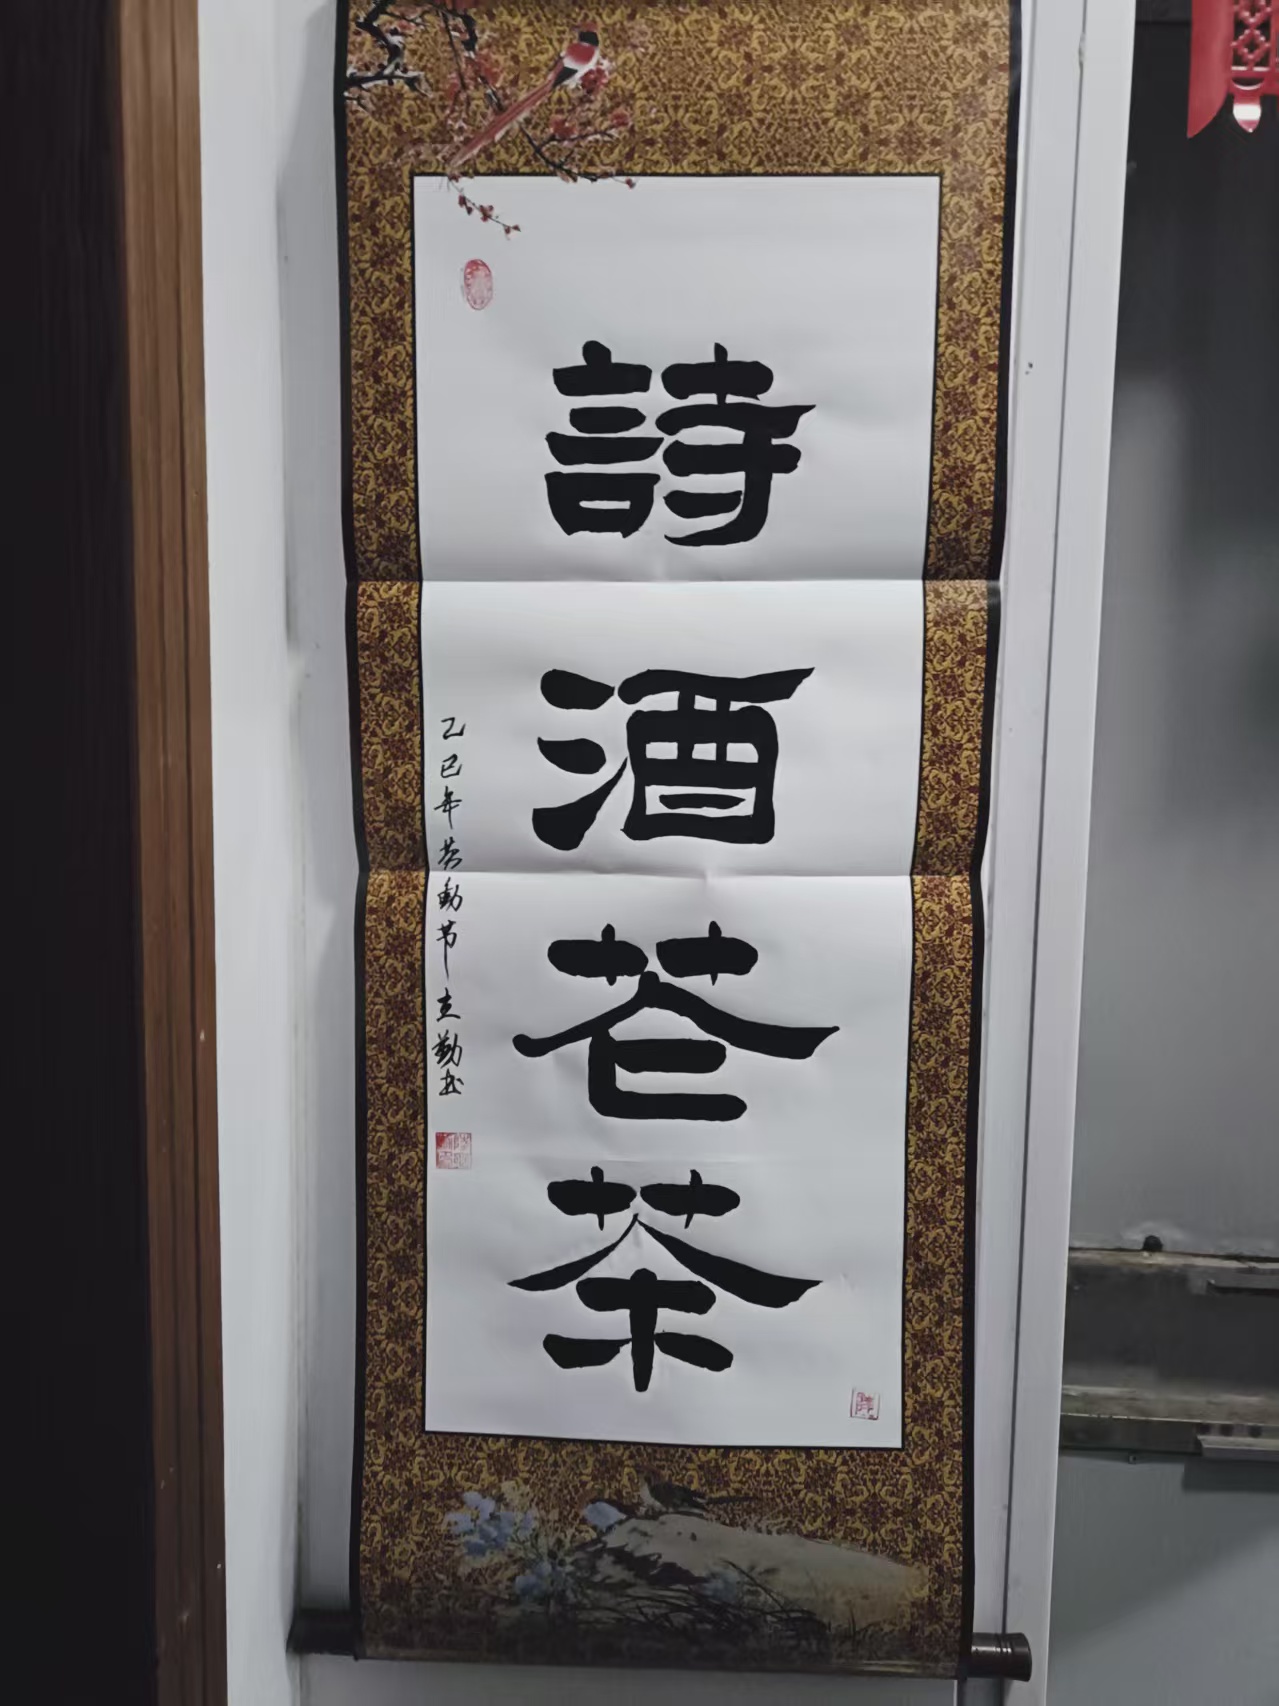 詩酒花茶
乙巳年劳動节立勤书